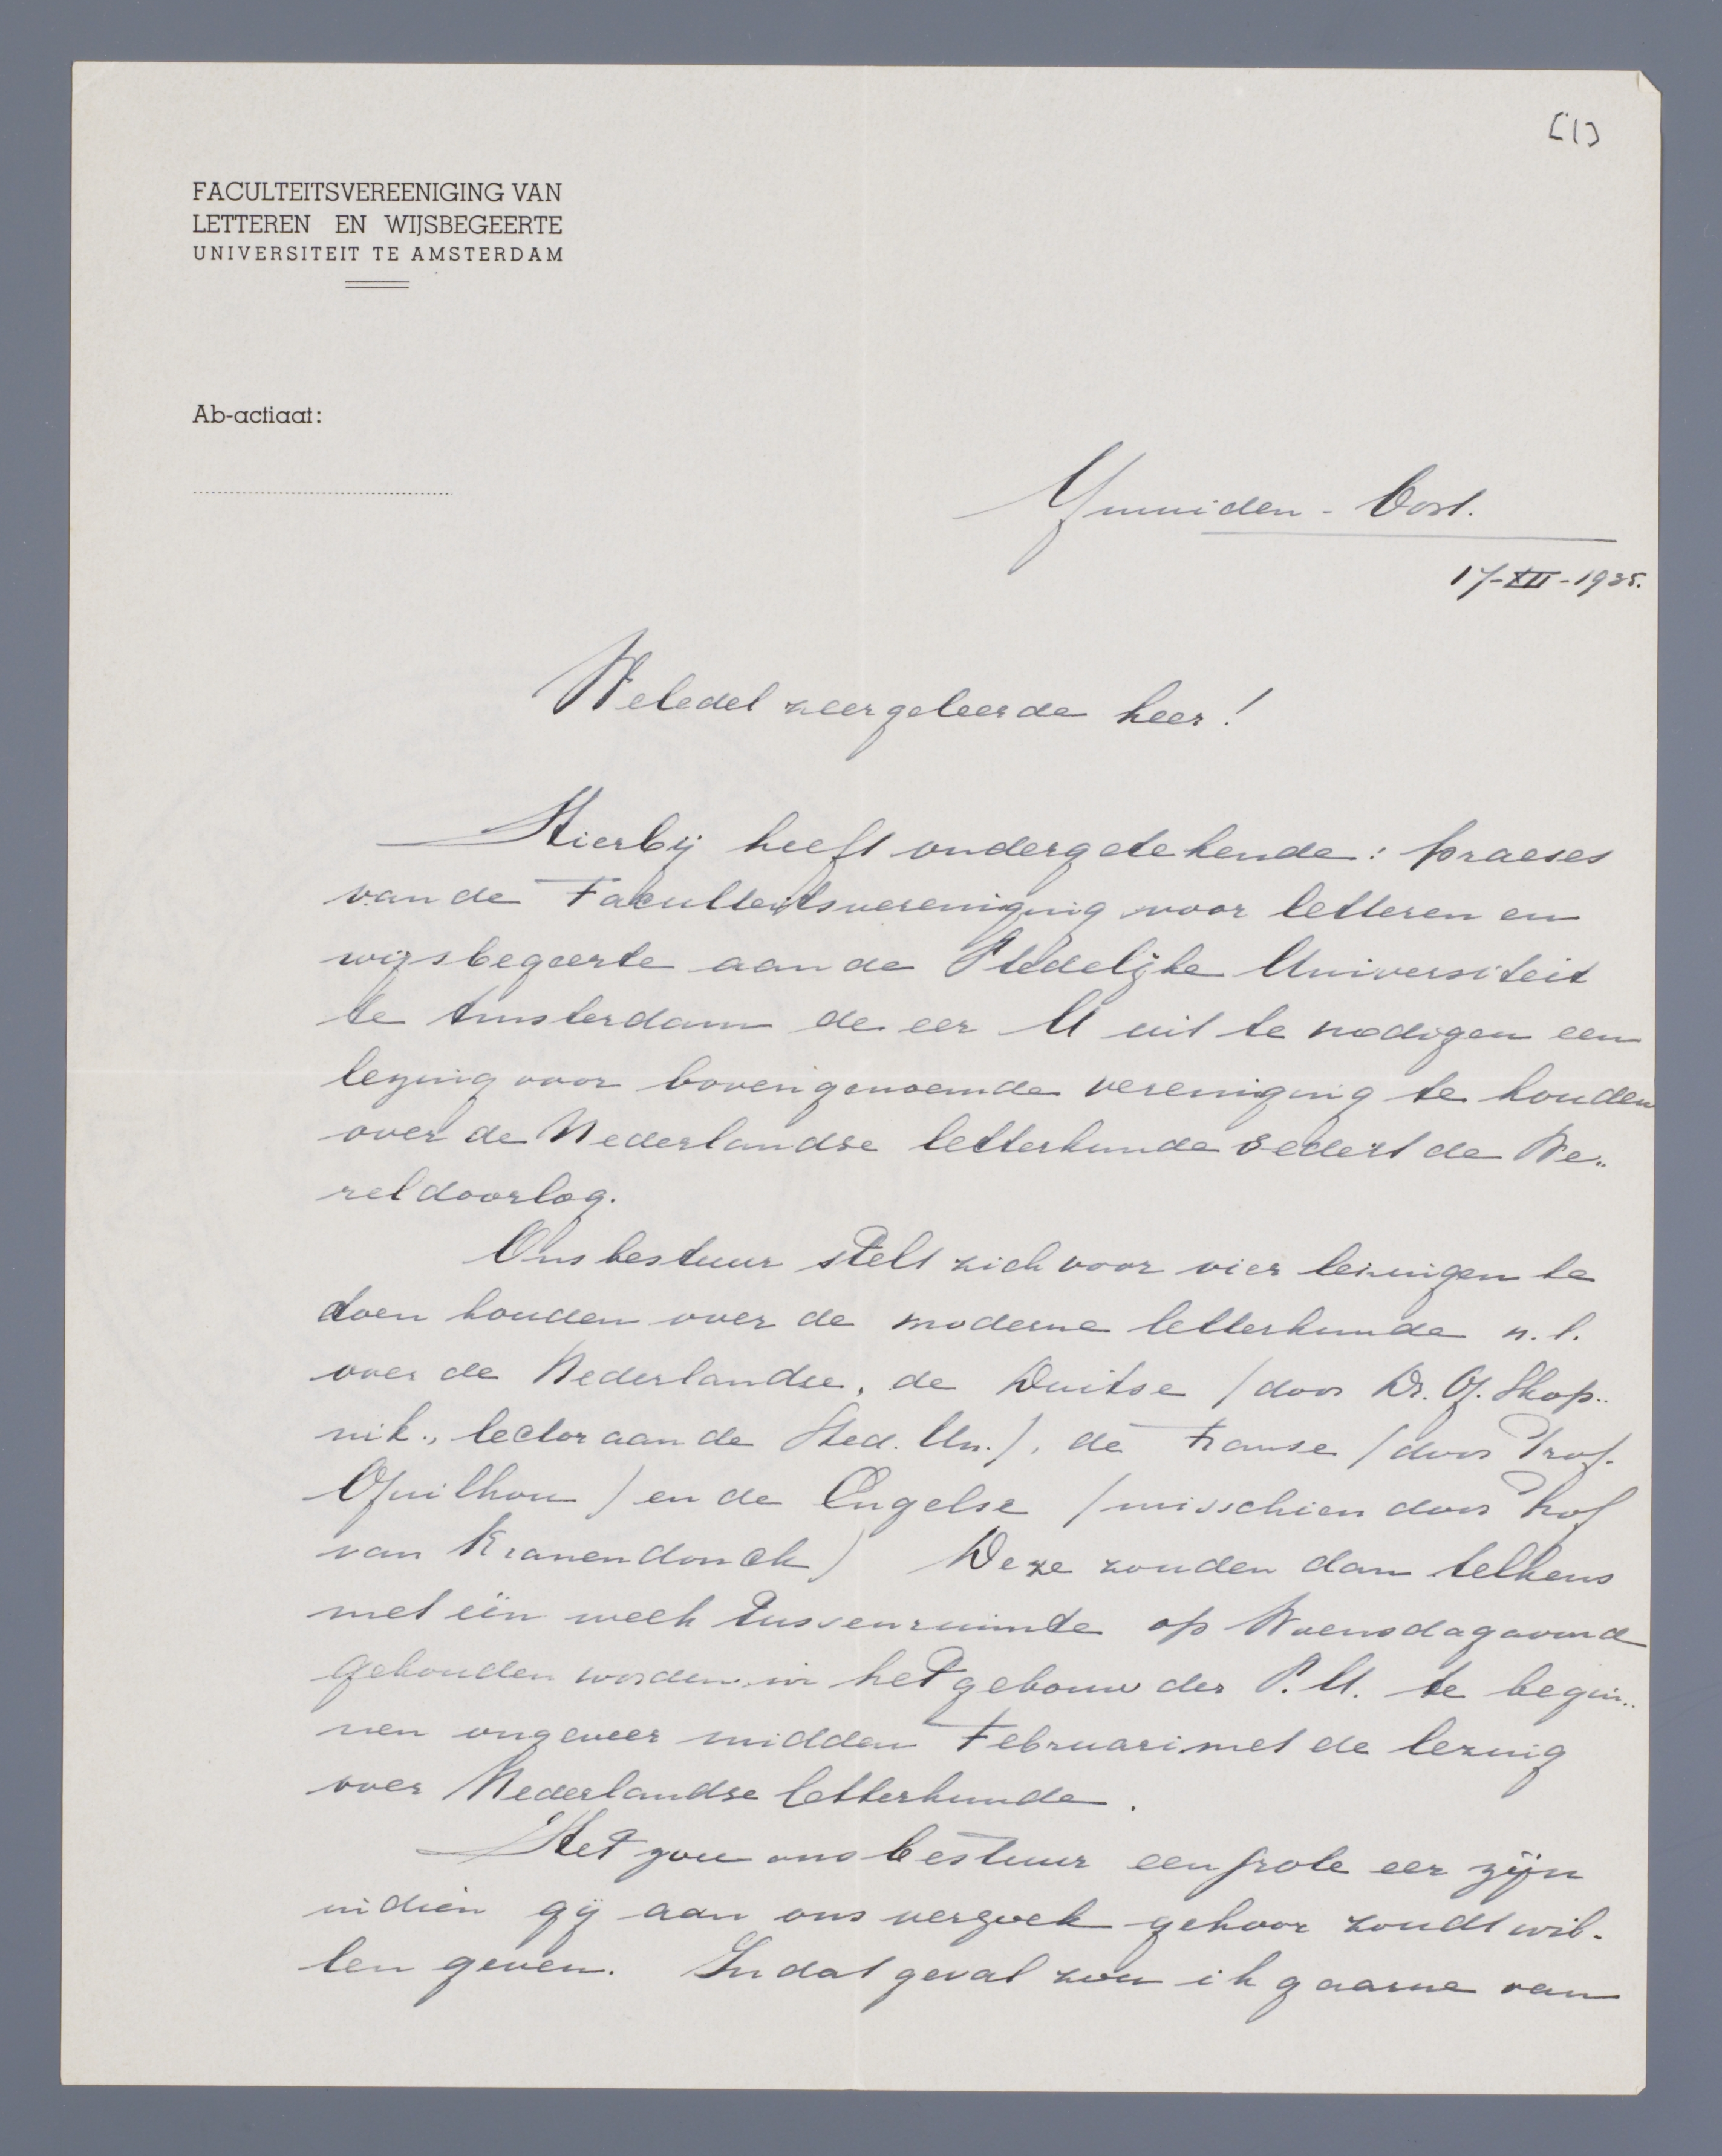 [1]
FACULTEITSVEREENIGING VAN
LETTEREN EN WIJSBEGEERTE
UNIVERSITEIT TE AMSTERDAM
Ab-actiaat:
Ymuiden - Oost.
17-XII-1935.
Weledel zeergeleerde heer!
Hierbij heeft ondergetekende: praeses
van de Faculteitsvereniging voor letteren en
wijsbegeerte aan de Stedelijke Universiteit
te Amsterdam de eer U uit te nodigen een
lezing voor bovengenoemde vereniging te houden
over de Nederlandse letterkunde sedert de We-
reldoorlog.
Ons bestuur stelt zich voor vier lezingen te
doen houden over de moderne letterkunde n.l.
over de Nederlandse, de Duitse (door Dr. G. Skop-
nik, lector aan de Sted. Un.), de Franse (door Prof.
Guilhou) en de Engelse (misschien door Prof
van Kranendonck) Deze zouden dan telkens
met één week tussenruimte op Woensdagavond
gehouden worden in het gebouw der S.U. te begin-
nen ongeveer midden Februari met de lezing
over Nederlandse letterkunde.
Het zou ons bestuur een grote eer zijn
indien gij aan ons verzoek gehoor zoudt wil-
len geven. In dat geval zou ik gaarne van